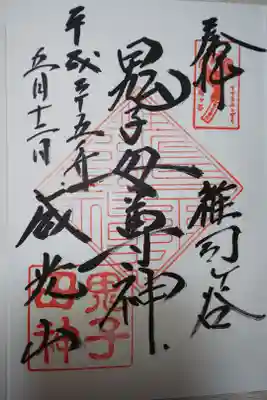 奉拝
雑司ヶ谷
鬼子母尊神
威光山
平成二十五年
五月十二日
鬼子
母神